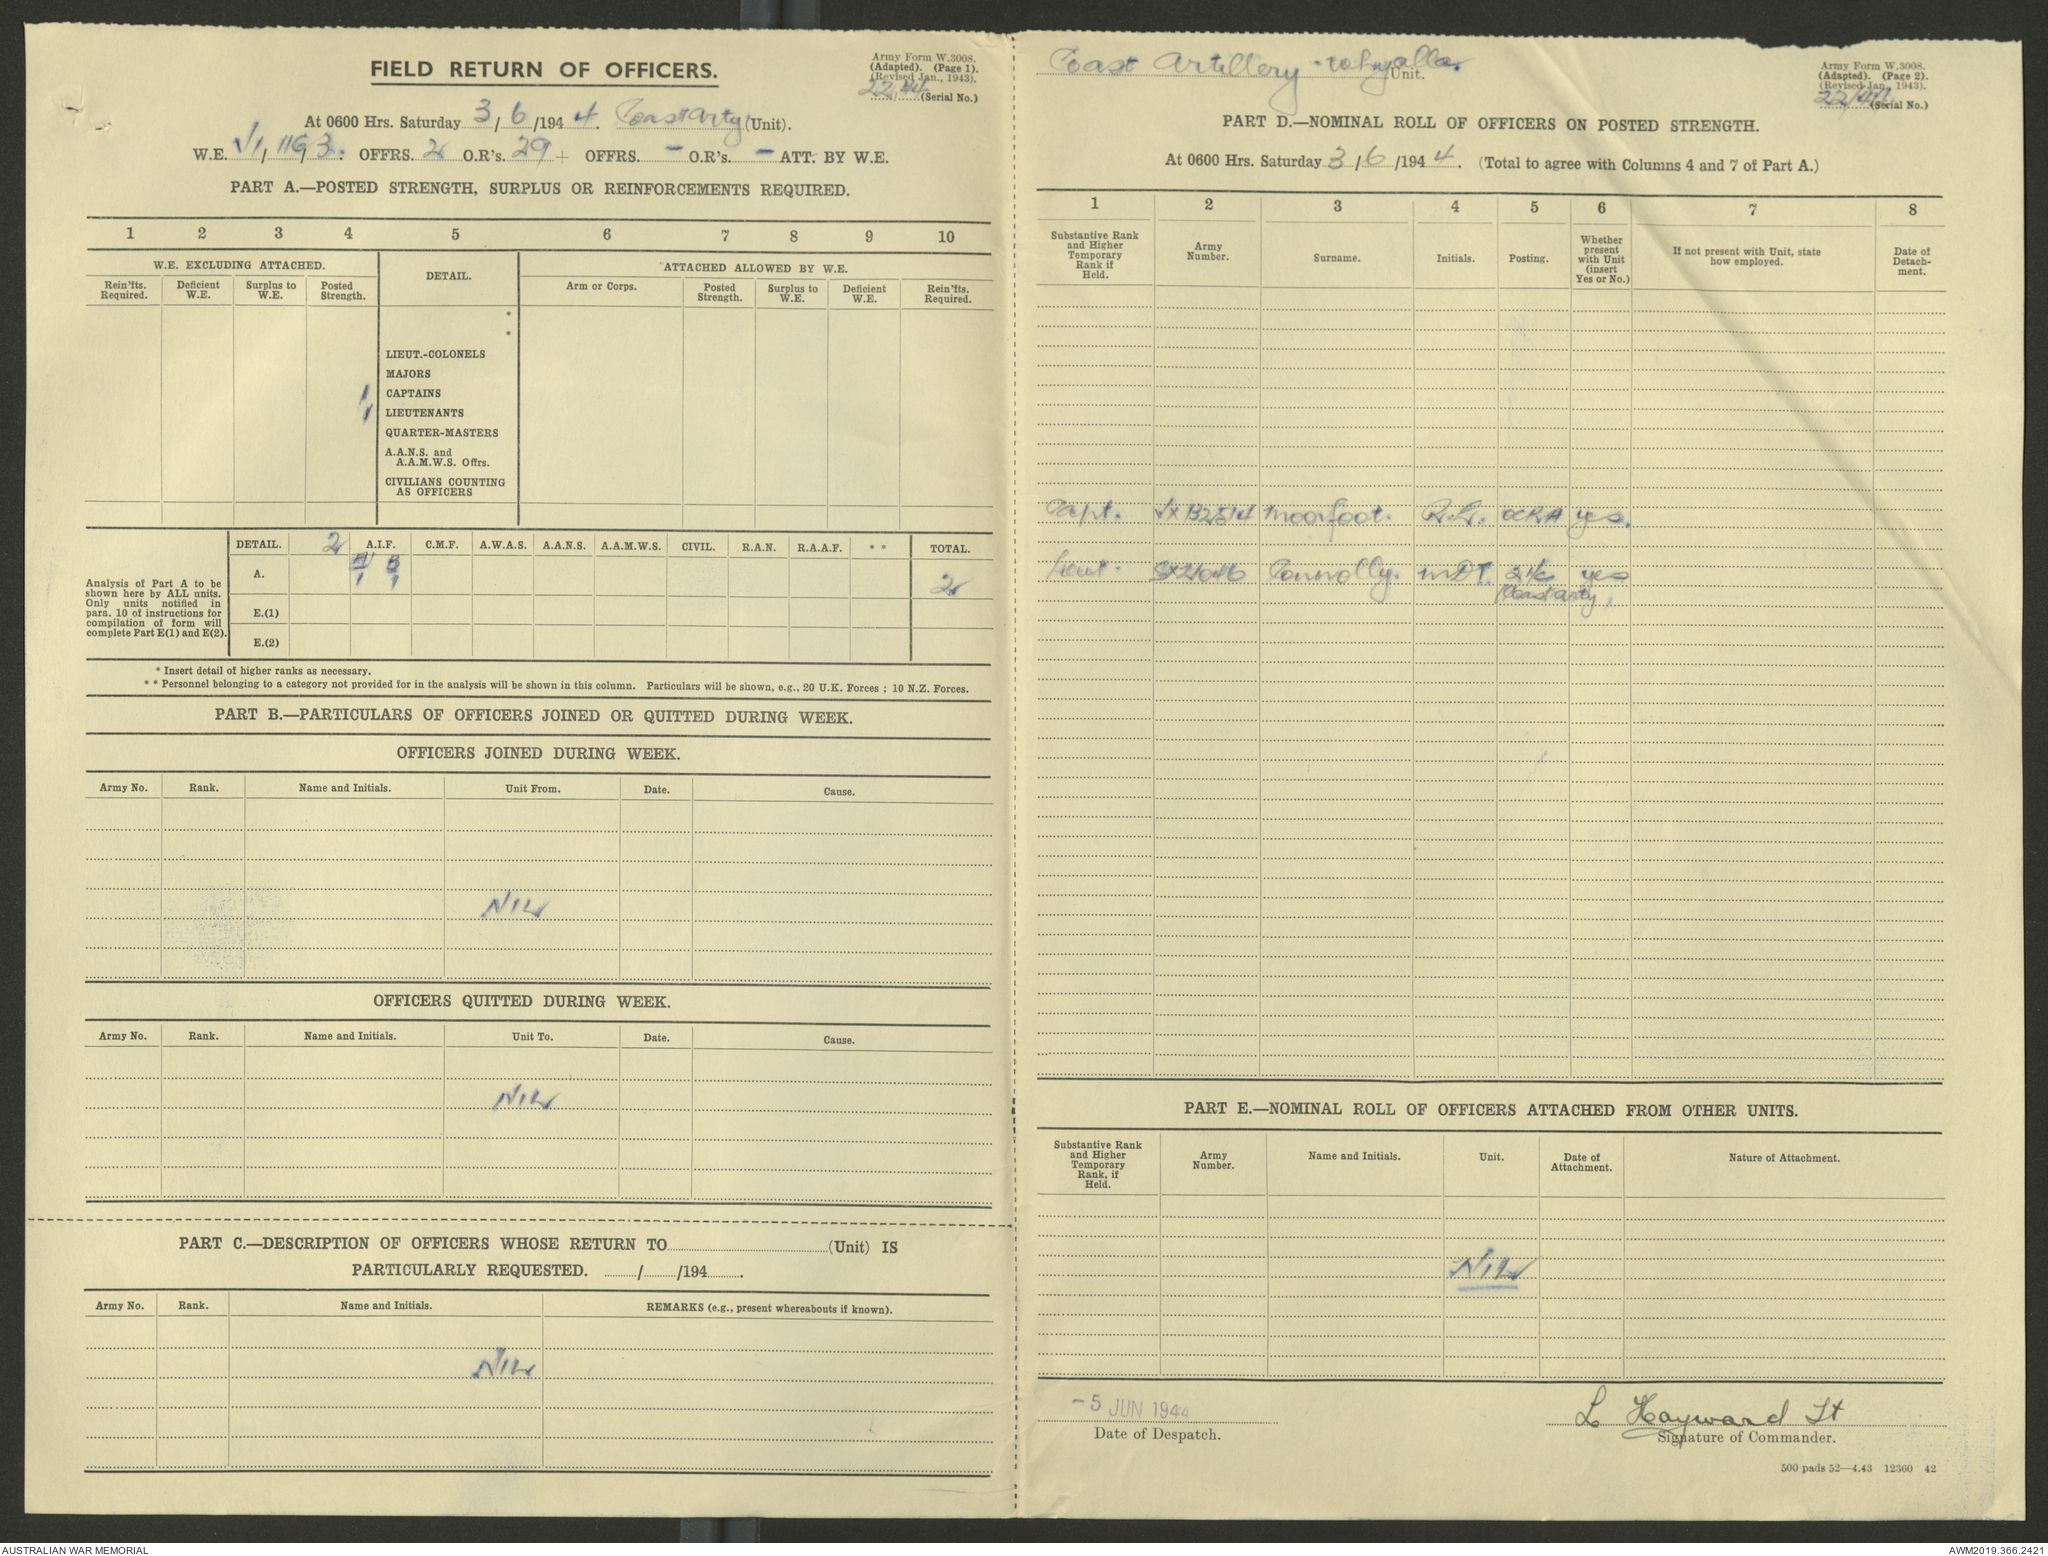 FIELD RETURN OF OFFICERS.
Army Form W.3008.
(Adapted). (Page 1).
(Revised Jan., 1943).
22/44 (Serial No.)
At 0600 Hrs. Saturday 3/6/1944. Coast Arty (Unit).
W.E. V1/116/3. OFFRS. 2 O.R's. 29 + OFFRS. - O.R's. - ATT. BY W.E.
PART A.—POSTED STRENGTH, SURPLUS OR REINFORCEMENTS REQUIRED.
1 2 3 4 5 6 7 8 9 10
W.E. EXCLUDING ATTACHED.
DETAIL.
ATTACHED ALLOWED BY W.E.
Rein'fts. Required.
Deficient W.E.
Surplus to W.E.
Posted Strength.
Arm or Corps.
Posted Strength.
Surplus to W.E.
Deficient W.E.
Rein'fts. Required.
*
*
LIEUT.-COLONELS
MAJORS
1 CAPTAINS
1 LIEUTENANTS
QUARTER-MASTERS
A.A.N.S. and
A.A.M.W.S. Offrs.
CIVILIANS COUNTING
AS OFFICERS
DETAIL. 2 A.I.F. C.M.F. A.W.A.S. A.A.N.S. A.A.M.W.S. CIVIL. R.A.N. R.A.A.F. * * TOTAL.
Analysis of Part A to be
shown here by ALL units.
Only units notified in
para. 10 of instructions for
compilation of form will
complete Part E(1) and E(2).
A B
A. 1 1 2
E.(1)
E.(2)
* Insert detail of higher ranks as necessary.
* * Personnel belonging to a category not provided for in the analysis will be shown in this column. Particulars will be shown, e.g., 20 U.K. Forces ; 10 N.Z. Forces.
PART B.—PARTICULARS OF OFFICERS JOINED OR QUITTED DURING WEEK.
OFFICERS JOINED DURING WEEK.
Army No. Rank. Name and Initials. Unit From. Date. Cause.
NIL
OFFICERS QUITTED DURING WEEK.
Army No. Rank. Name and Initials. Unit To. Date. Cause.
NIL
PART C.—DESCRIPTION OF OFFICERS WHOSE RETURN TO (Unit) IS
PARTICULARLY REQUESTED. / /194 .
Army No. Rank. Name and Initials. REMARKS (e.g., present whereabouts if known).
NIL
Coast Artillery - Whyalla. Unit.
Army Form W.3008.
(Adapted). (Page 2).
(Revised Jan., 1943).
22/44 (Serial No.)
PART D.—NOMINAL ROLL OF OFFICERS ON POSTED STRENGTH.
At 0600 Hrs. Saturday 3/6/1944. (Total to agree with Columns 4 and 7 of Part A.)
1 2 3 4 5 6 7 8
Substantive Rank and Higher Temporary Rank if Held.
Army Number.
Surname.
Initials.
Posting.
Whether present with Unit (insert Yes or No.)
If not present with Unit, state how employed.
Date of Detach-ment.
Capt. Moorfoot. yes.
Lieut. SX21046 Connolly. MDT. 2 I/C yes
Coast Arty
PART E.—NOMINAL ROLL OF OFFICERS ATTACHED FROM OTHER UNITS.
Substantive Rank and Higher Temporary Rank, if Held.
Army Number.
Name and Initials.
Unit.
Date of Attachment.
Nature of Attachment.
NIL
-5 JUN 1944
Date of Despatch.
L Hayward Lt
Signature of Commander.
500 pads 52—4.43 12360 42
AUSTRALIAN WAR MEMORIAL
AWM2019.366.2421